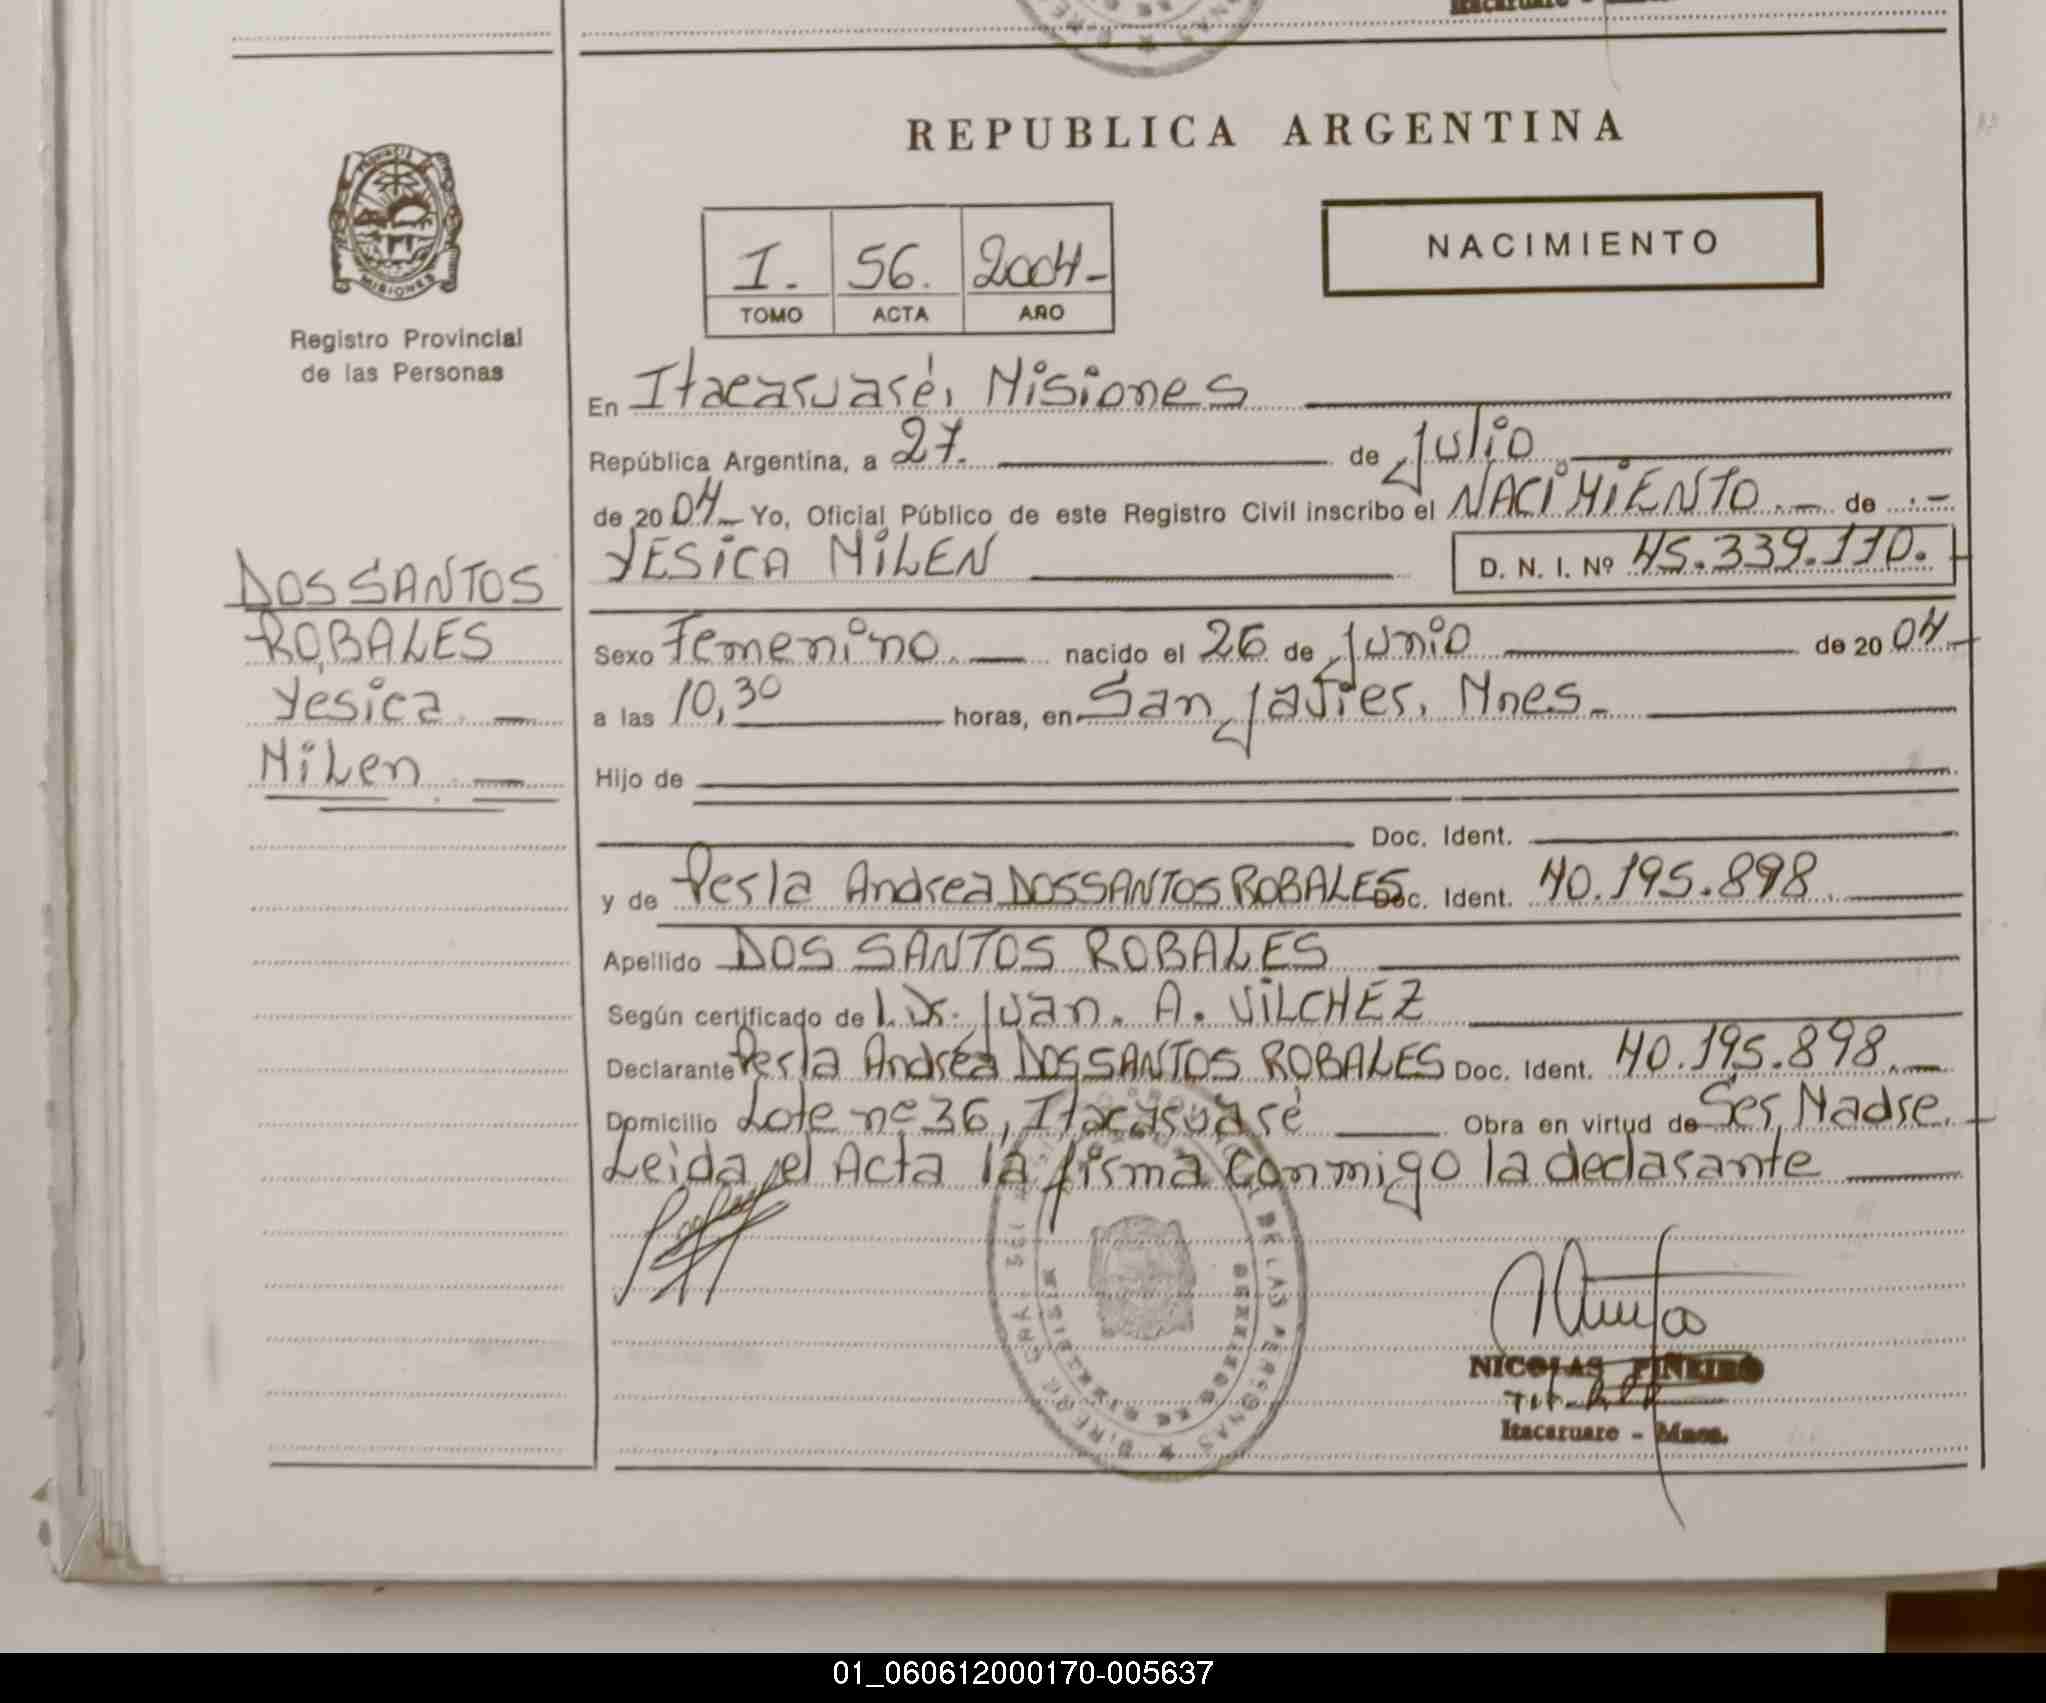 REPUBLICA ARGENTINA
PROVINCIA
MISIONES
Registro Provincial
de las Personas
I. 56. 2004-
TOMO ACTA AÑO
NACIMIENTO
En Itacaruaré, Misiones
República Argentina, a 27. de Julio
de 2004 Yo, Oficial Público de este Registro Civil inscribo el NACIMIENTO de
YESICA MILEN D. N. I. Nº 45.339.110.
DOS SANTOS
ROBALES
Yesica
Milen
Sexo Femenino. nacido el 26 de Junio de 2004
a las 10,30 horas, en San Javier, Mnes.
Hijo de
Doc. Ident.
y de Perla Andrea DOS SANTOS ROBALES Doc. Ident. 40.195.898
Apellido DOS SANTOS ROBALES
Según certificado de l. Dr. Juan. A. VILCHEZ
Declarante Perla Andréa DOS SANTOS ROBALES Doc. Ident. 40.195.898
Domicilio Lote nº 36, Itacaruaré Obra en virtud de Ser, Madre.
Leida el Acta la firma conmigo la declarante
DE LAS PERSONAS
NICOLAS PIÑEIRO
Itacaruare - Mnes.
01_060612000170-005637